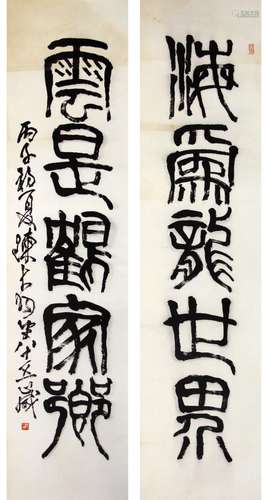 海爲龍世界
雲是鶴家鄉
丙子初夏陳大羽年八十五歲